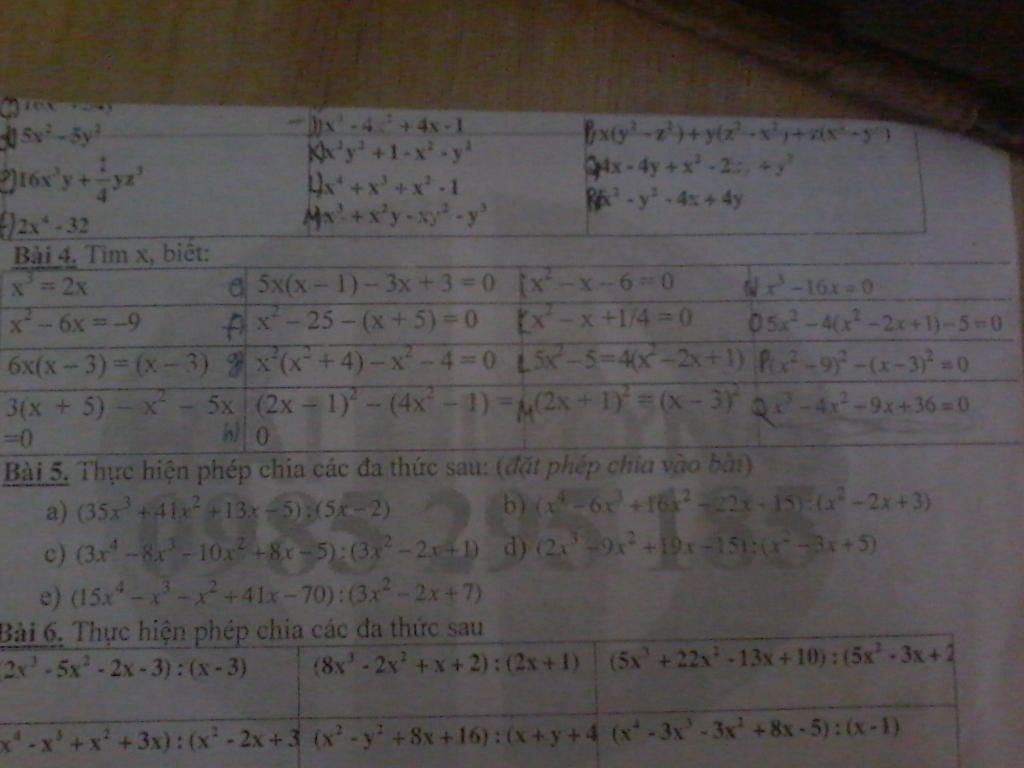 5x² - 5y²
x³ - 4x² + 4x - 1
x(y² - z²) + y(z² - x²) + z(x² - y²)
16x³y + 1/4 yz³
x²y² + 1 - x² - y²
4x - 4y + x² - 2xy + y²
2x⁴ - 32
x⁴ + x³ + x² - 1
x² - y² - 4x + 4y
x³ + x²y - xy² - y³
Bài 4. Tìm x, biết:
x³ = 2x
5x(x – 1) – 3x + 3 = 0
x² – x – 6 = 0
x³ – 16x = 0
x² – 6x = –9
x² – 25 – (x + 5) = 0
x² – x + 1/4 = 0
5x² – 4(x² – 2x + 1) – 5 = 0
6x(x – 3) = (x – 3)
x²(x² + 4) – x² – 4 = 0
5x² – 5 = 4(x² – 2x + 1)
(x² – 9)² – (x – 3)² = 0
3(x + 5) – x² – 5x
=0
(2x – 1)² – (4x² – 1) =
0
(2x + 1)² = (x – 3)²
x³ – 4x² – 9x + 36 = 0
Bài 5. Thực hiện phép chia các đa thức sau: (đặt phép chia vào bài)
a) (35x³ + 41x² + 13x – 5) : (5x – 2)
b) (x⁴ – 6x³ + 16x² – 22x + 15) : (x² – 2x + 3)
c) (3x⁴ – 8x³ – 10x² + 8x – 5) : (3x² – 2x + 1)
d) (2x³ – 9x² + 19x – 15) : (x² – 3x + 5)
e) (15x⁴ – x³ – x² + 41x – 70) : (3x² – 2x + 7)
0985 295 185
Bài 6. Thực hiện phép chia các đa thức sau
(2x³ - 5x² - 2x - 3) : (x - 3)
(8x³ - 2x² + x + 2) : (2x + 1)
(5x³ + 22x² - 13x + 10) : (5x² - 3x + 2
x⁴ - x³ + x² + 3x) : (x² - 2x + 3
(x² - y² + 8x + 16) : (x + y + 4
(x⁴ - 3x³ - 3x² + 8x - 5) : (x - 1)